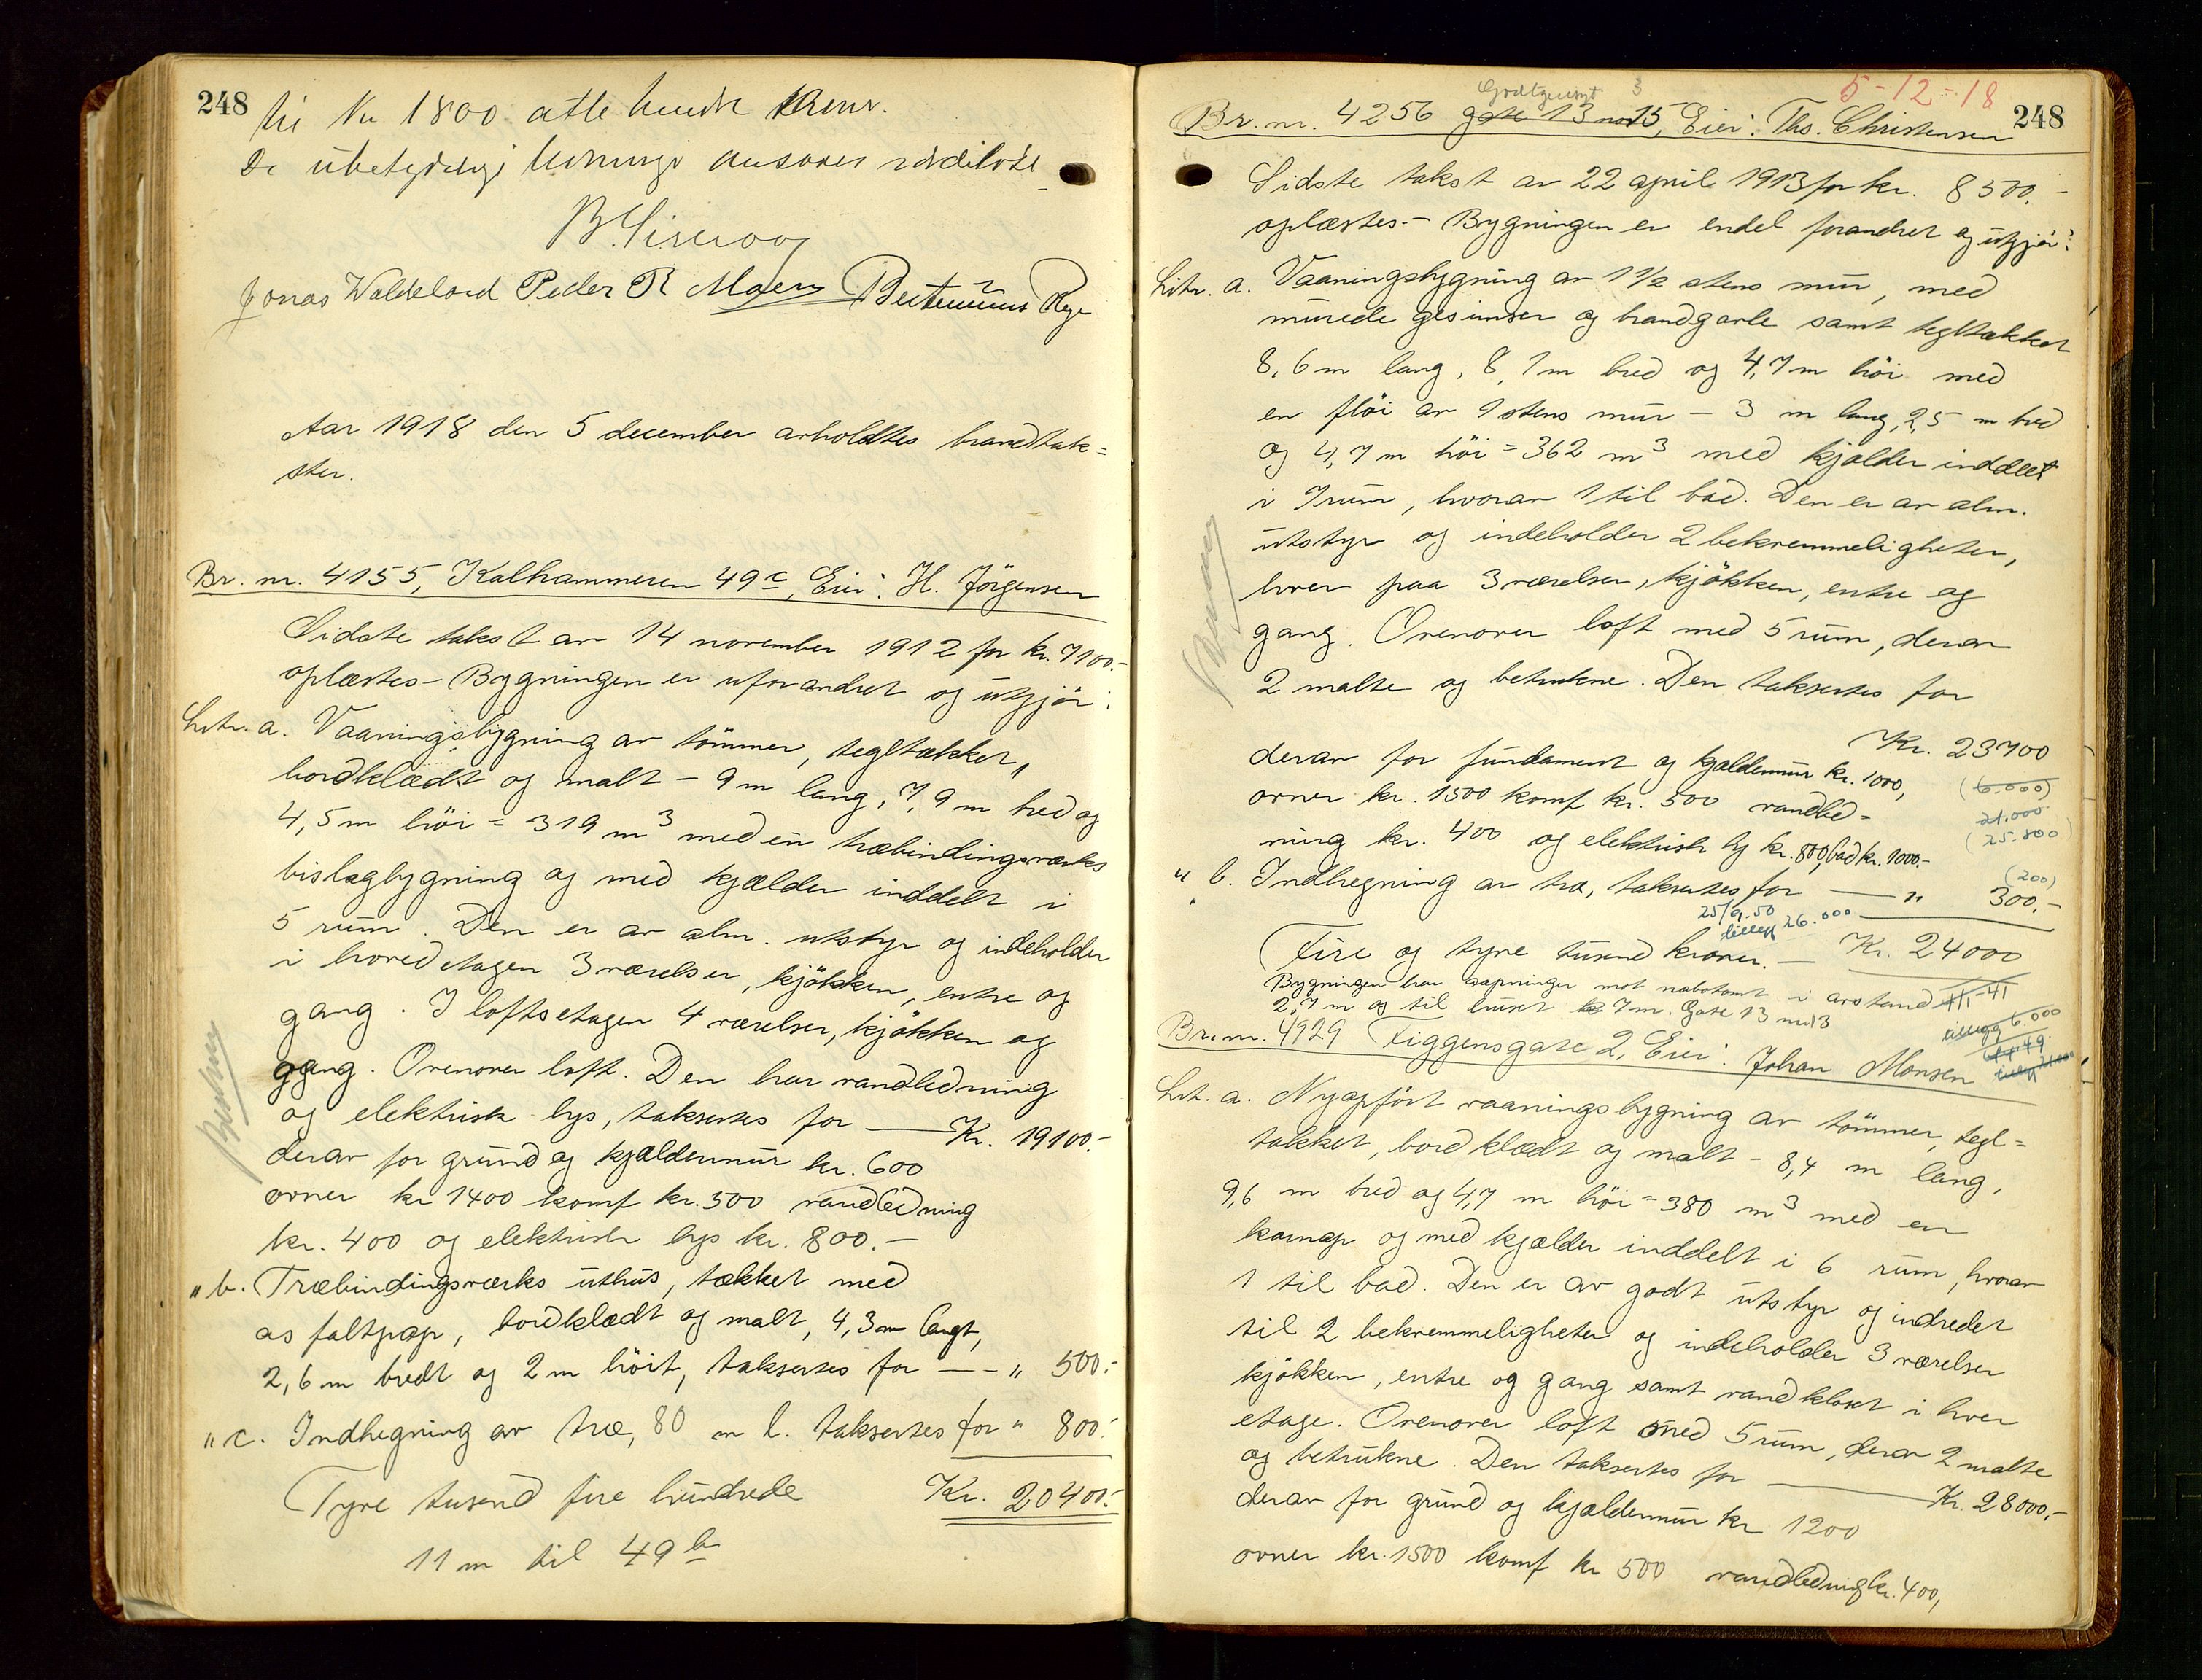 248
til Kr 1800 atte hundr Kroner.
De ubetydelige ansaaes værdiløse
Jonas Waldeland Peder R Moen
Aar 1918 den 5 december avholdtes brandtak=
ster.
Br. nr. 4155, Kalhammeren 49c, Eier: H. Jörgensen
Sidste takst av 14 november 1912 for kr. 7100.-
oplæstes - Bygningen er uforandret og utgjör:
Litr. a. Vaaningsbygning av tömmer, tegltækket,
bordklædt og malt - 9 m lang, 7,9 m bred og
4,5 m höi = 319 m3 med en træbindingsværks
bislagbygning og med kjælder inddelt i
5 rum. Den er av alm. utstyr og indeholder
i hovedetagen 3 værelser, kjökken, entre og
gang. I loftsetagen 4 værelser, kjökken og
gang. Ovenover loft. Den har vandledning
og elektrisk lys, taksertes for — Kr. 19100.-
derav for grund og kjældermur kr. 600
ovner kr 1400 komf kr. 500 vandledning
kr. 400 og elektrisk lys kr. 800.-
" b. Træbindingsværks uthus, tækket med
asfaltpap, bordklædt og malt, 4,3 m langt,
2,6 m bredt og 2 m höit, taksertes for — " 500.-
" c. Indhegning av træ, 80 m l. taksertes for " 800.-
Tyve tusend fire hundrede Kr. 20400.-
11 m til 49 b
5-12-18
248
Godtgjurt 3
Br. nr. 4256 gate 13 no 15, Eier: Ths. Christensen
Sidste takst av 22 april 1913 for kr. 8500.-
oplæstes.- Bygningen er endel forandret og utgjör:
Litr. a. Vaaningsbygning av 1 1/2 stens mur, med
murede gesimser og brandgavle samt tegltækket
8,6 m lang, 8,1 m bred og 4,7 m höi med
en flöi av 1 stens mur - 3 m lang, 2,5 m bred
og 4,7 m höi = 362 m3 med kjælder inddelt
i 7 rum, hvorav 1 til bad. Den er av alm.
utstyr og indeholder 2 bekvemmeligheter,
hver paa 3 værelser, kjökken, entre og
gang. Ovenover loft med 5 rum, derav
2 malte og betrukne. Den taksertes for
Kr. 23700
derav for fundament og kjældermur kr. 1000,
(6.000)
ovner kr. 1500 komf kr. 500 vandled=
21.000
ning kr. 400 og elektrisk ly kr. 800, bad kr. 1000.-
(25.800)
(200)
" b. Indhegning av træ, taksertes for — " 300.-
25/9.50
tillegg 26.000
Fire og tyve tusend kroner. — Kr. 24000
Bygningen har aapninger mot nabotomt i avstand
2,7 m og til huset 7 m. Gate 13 nr 13
1/1-41
tillegg 6.000
Br. nr. 4929 Figgensgate 2, Eier: Johan Monsen
Lit. a. Nyopfört vaaningsbygning av tömmer, tegl=
tækket, bordklædt og malt - 8,4 m lang,
9,6 m bred og 4,7 m höi = 380 m3 med en
karnap og med kjælder inddelt i 6 rum, hvorav
1 til bad. Den er av godt utstyr og indredet
til 2 bekvemmeligheter og indeholder 3 værelser
kjökken, entre og gang samt vandkloset i hver
etage. Ovenover loft med 5 rum, derav 2 malte
og betrukne. Den taksertes for — Kr. 28000,-
derav for grund og kjældermur kr 1200
ovner kr. 1500 komf kr 500 vandledning kr. 400,